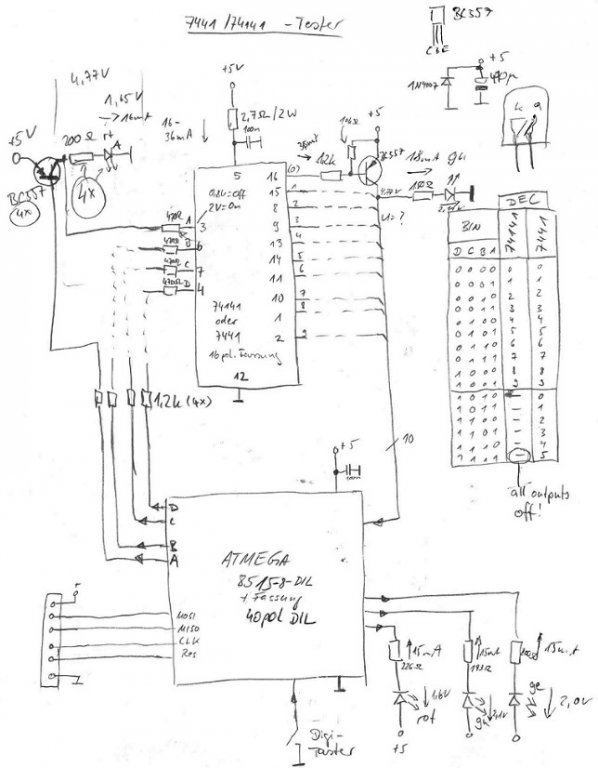 7441/74141 - Tester
BC557
CBE
+5
1N4007
470µ
k a
4,77V
1,65V
→ 16mA
+5V
200Ω rt A
4x
BC557
4x
+5V
2,7Ω/2W
100n
16-
36mA
5
0,8V=off
2V=On
470Ω A 3
470Ω B 6
470Ω C 7
470Ω D 4
74141
oder
7441
16pol. Fassung
12
16 (0)
15 1
8 2
9 3
13 4
14 5
11 6
10 7
1 8
2 9
1,2k
+5
BC557
18mA gn
150Ω
U=?
10
1,2k (4x)
DEC
BIN 74141 7441
D C B A
0 0 0 0 0 0
0 0 0 1 1 1
0 0 1 0 2 2
0 0 1 1 3 3
0 1 0 0 4 4
0 1 0 1 5 5
0 1 1 0 6 6
0 1 1 1 7 7
1 0 0 0 8 8
1 0 0 1 9 9
1 0 1 0 – 0
1 0 1 1 – 1
1 1 0 0 – 2
1 1 0 1 – 3
1 1 1 0 – 4
1 1 1 1 – 5
all outputs
off!
+5
100n
D
C
B
A
ATMEGA
8515-8-DIL
+ Fassung
40pol DIL
MOSI
MISO
CLK
Res
5
Digi-
Taster
15mA
220Ω
1,6V
rot
+5
15mA
gn
2,1V
15mA
ge
2,0V